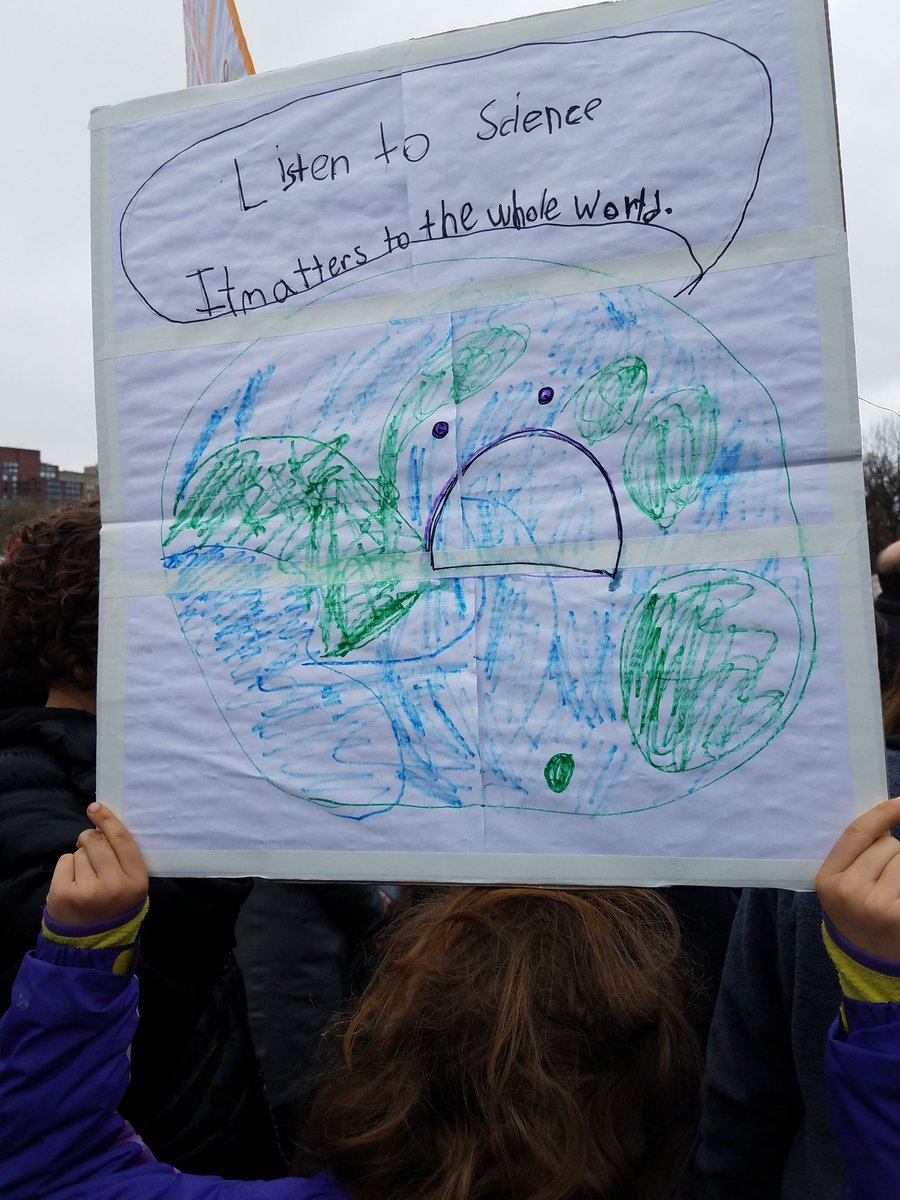 Listen to Science
It matters to the whole World.